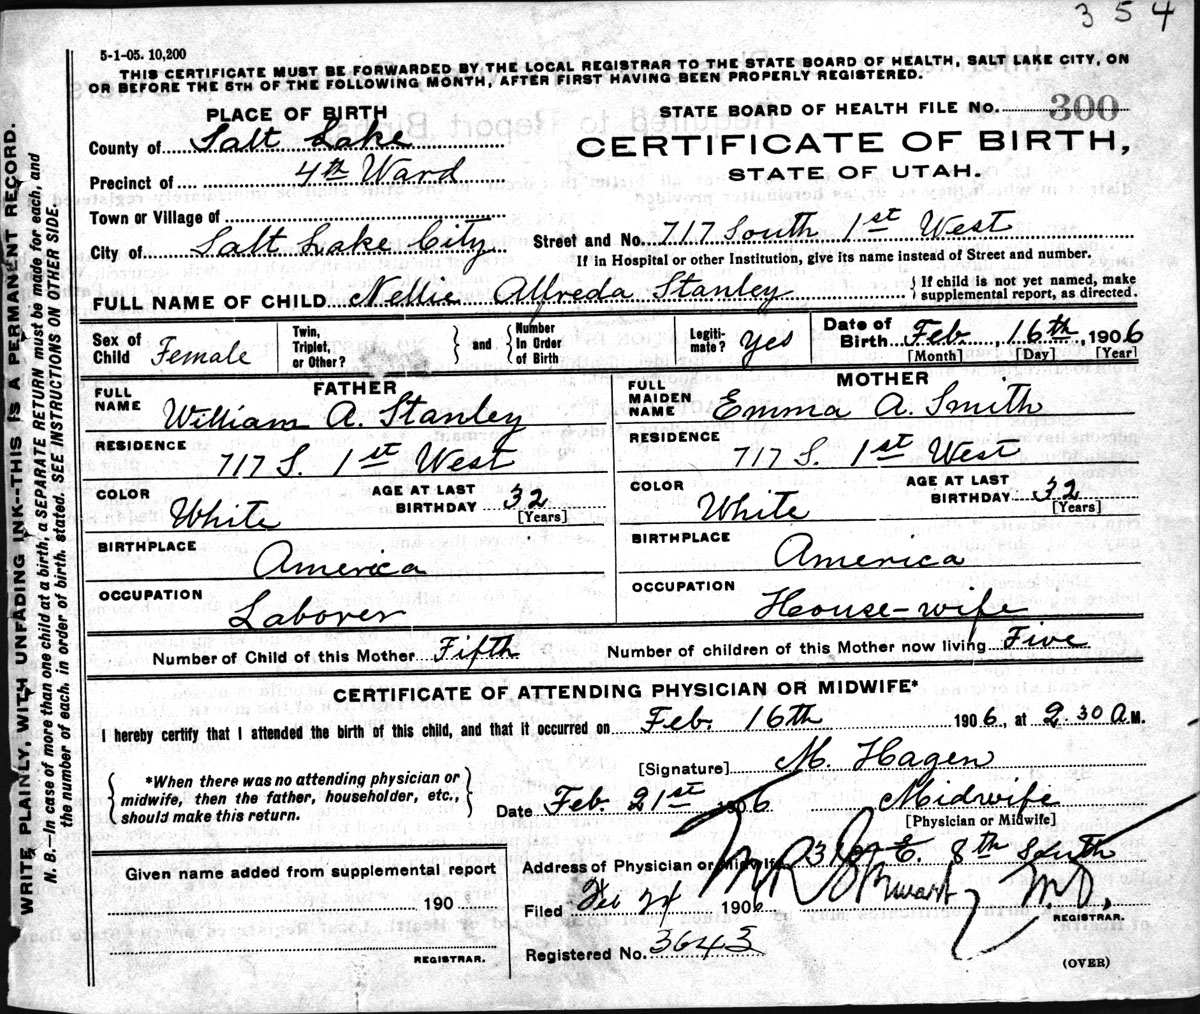 354
5-1-05. 10,200
THIS CERTIFICATE MUST BE FORWARDED BY THE LOCAL REGISTRAR TO THE STATE BOARD OF HEALTH, SALT LAKE CITY, ON
OR BEFORE THE 5TH OF THE FOLLOWING MONTH, AFTER FIRST HAVING BEEN PROPERLY REGISTERED.
PLACE OF BIRTH
STATE BOARD OF HEALTH FILE No. 300
County of Salt Lake
CERTIFICATE OF BIRTH,
Precinct of 4th Ward
STATE OF UTAH.
Town or Village of
City of Salt Lake City Street and No. 717 South 1st West
If in Hospital or other Institution, give its name instead of Street and number.
FULL NAME OF CHILD Nellie Alfreda Stanley { If child is not yet named, make
supplemental report, as directed.
Sex of Child Female Twin, Triplet, or Other? } and { Number In Order of Birth Legiti- mate? yes Date of Birth Feb. 16th, 1906
[Month] [Day] [Year]
FATHER MOTHER
FULL NAME William A. Stanley FULL MAIDEN NAME Emma A. Smith
RESIDENCE 717 S. 1st West RESIDENCE 717 S. 1st West
COLOR White AGE AT LAST BIRTHDAY 32 [Years] COLOR White AGE AT LAST BIRTHDAY 32 [Years]
BIRTHPLACE America BIRTHPLACE America
OCCUPATION Laborer OCCUPATION House-wife
Number of Child of this Mother Fifth Number of children of this Mother now living Five
CERTIFICATE OF ATTENDING PHYSICIAN OR MIDWIFE*
I hereby certify that I attended the birth of this child, and that it occurred on Feb. 16th 1906, at 2.30 A.M.
*When there was no attending physician or
midwife, then the father, householder, etc.,
should make this return.
[Signature] M. Hagen
Date Feb. 21st 1906 Midwife
[Physician or Midwife]
Address of Physician or Midwife E. 8th South
Filed Feb 24 1906 M.D.
REGISTRAR.
Registered No. 3643
(OVER)
Given name added from supplemental report
190
REGISTRAR.
WRITE PLAINLY, WITH UNFADING INK--THIS IS A PERMANENT RECORD.
N. B.—In case of more than one child at a birth, a SEPARATE RETURN must be made for each, and
the number of each, in order of birth, stated. SEE INSTRUCTIONS ON OTHER SIDE.